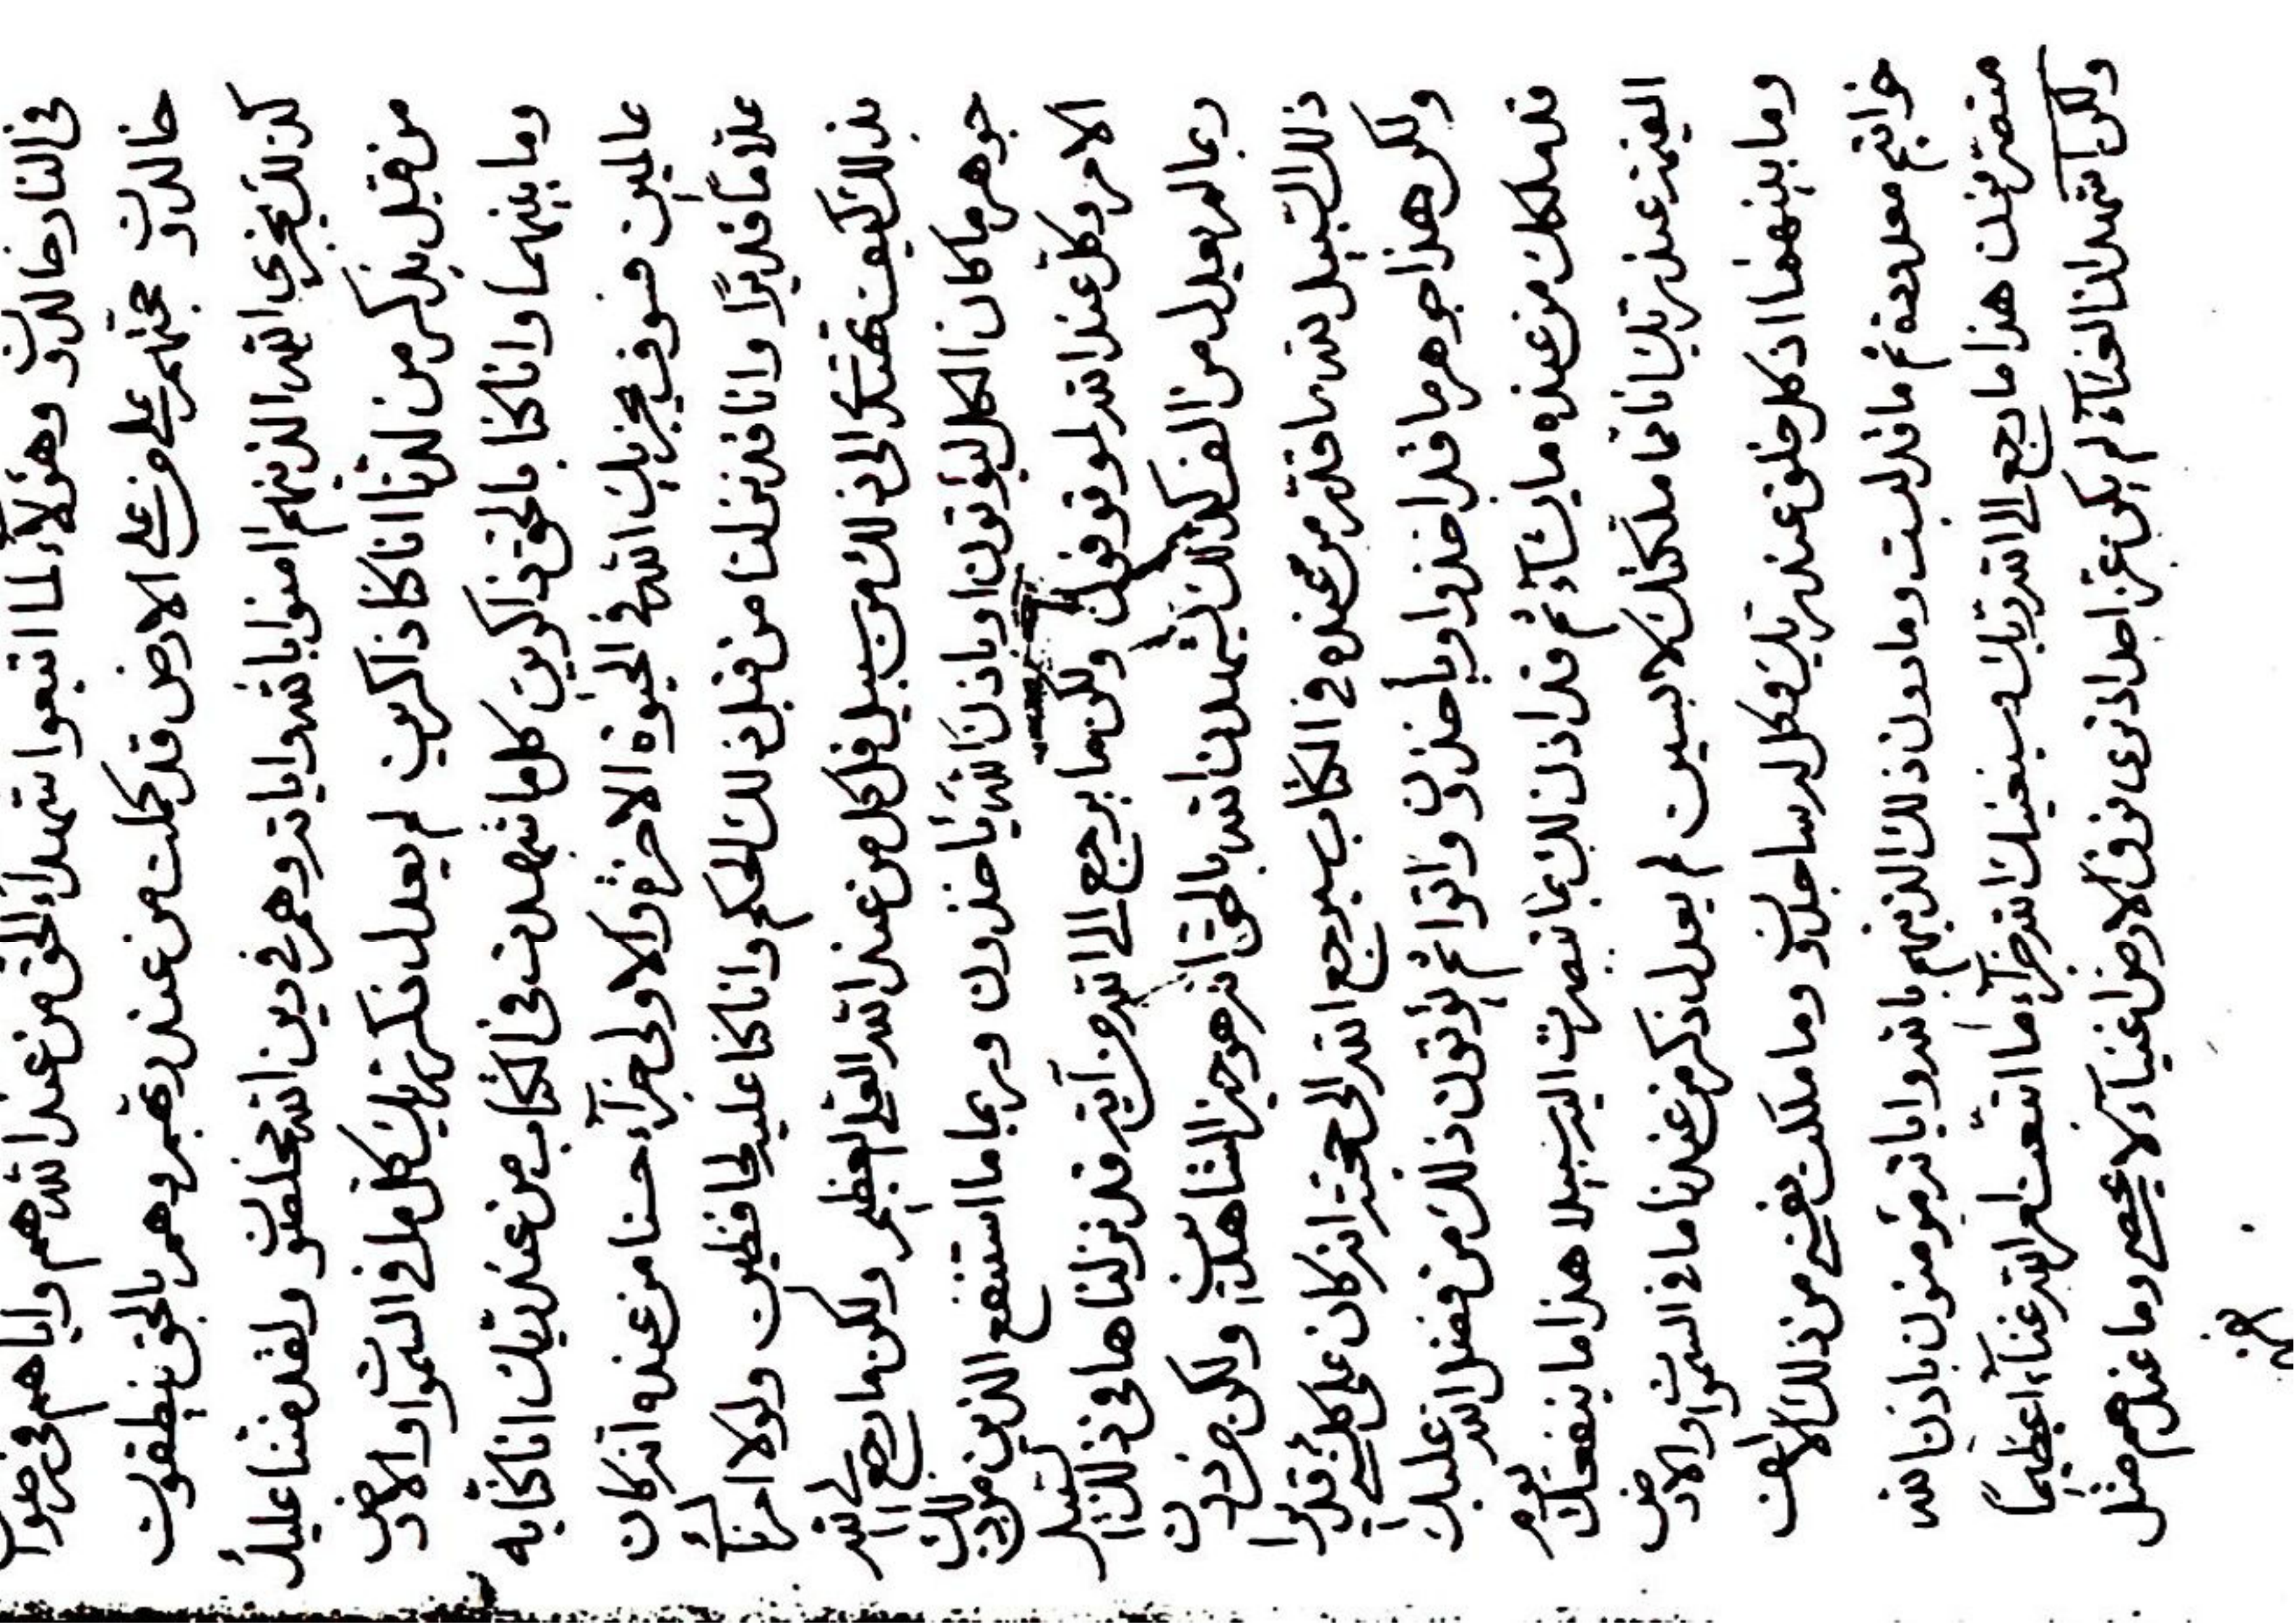 في النار خالدون وهؤلاء لما اتبعوا شهداء الحق من عند الله هم واياهم في رضوا
خالدون حجتهم على من على الارض قد كملت من عند ربهم وهم بالحق ينطقون
كذلك يجزى الله الذينهم امنوا بالله واياته وهم في دين الله مخلصون ولقد مننا عليك
من قبل بذكر من لدنا انا كنا ذاكرين لم يعدل ذكر ربك كل ما في السموات والارض
وما بينهما وانا كنا بالحق ذاكرين كل ما شهدت في الكتاب من عند ربك انا كنا به
عالمين فسوف يجزيك الله في الحيوة الاخرة والاولى جزآء حسنا من عنده انه كان
علاما قديرا وانا قد نزلنا من قبل ذلك الحكم وانا كنا عليه لحافظين ولولا امرنا
بذلك كيف يهتدى الى ذلك من سبيل قل كل من عند الله العلي العظيم ولكن ما رجع الى الله
جوهر ما كان الكل ليؤتون او باذن الله ياخذون وربما ما استنفع الذين
الامر وكل عند الله لموقوفون ولكن ما يرجع الى الله من آية قد نزلناها في ذلك السبيل
ربما لم يعدل من الف كذلك ليشهدن الله بالحق انه هو خير الشاهدين ولكن من دون
ذلك السبيل لله ما قدر من عنده في الكتاب سيرجع الله الى حجته انه كان على كل شيء قديرا
ولكن هذا جوهر ما قد اخذوا وياخذون واتوا ثم يؤتون ذلك من فضل الله عليك
قد ملكك من عنده ما يشآء ثم قد اذن لك بما تصرف اليه سبيلا هذا ما ينفعك يوم
القيمة عند ربك انا ما ملكتك لا بسبيل لم يعدل ذكر من عندنا ما في السموات والارض
وما بينهما اذ كل خلق عند ربك وكل له ساجدون وما ملكت نفسي من ذلك الالف
خواتيم معدودة ثم ما قد لبست وما دون ذلك الذينهم بالله واياته مؤمنون باذن الله
متصرفون هذا ما رجع الى الله ربك وسيغنيك الله جزآء ما اتبعت امر الله غنآء عظيما
ولكن اشهد ان الغنآء لم يكن عز احد اذ نرى فوق الارض اغنيآء لا يحصى وما عندهم مثل